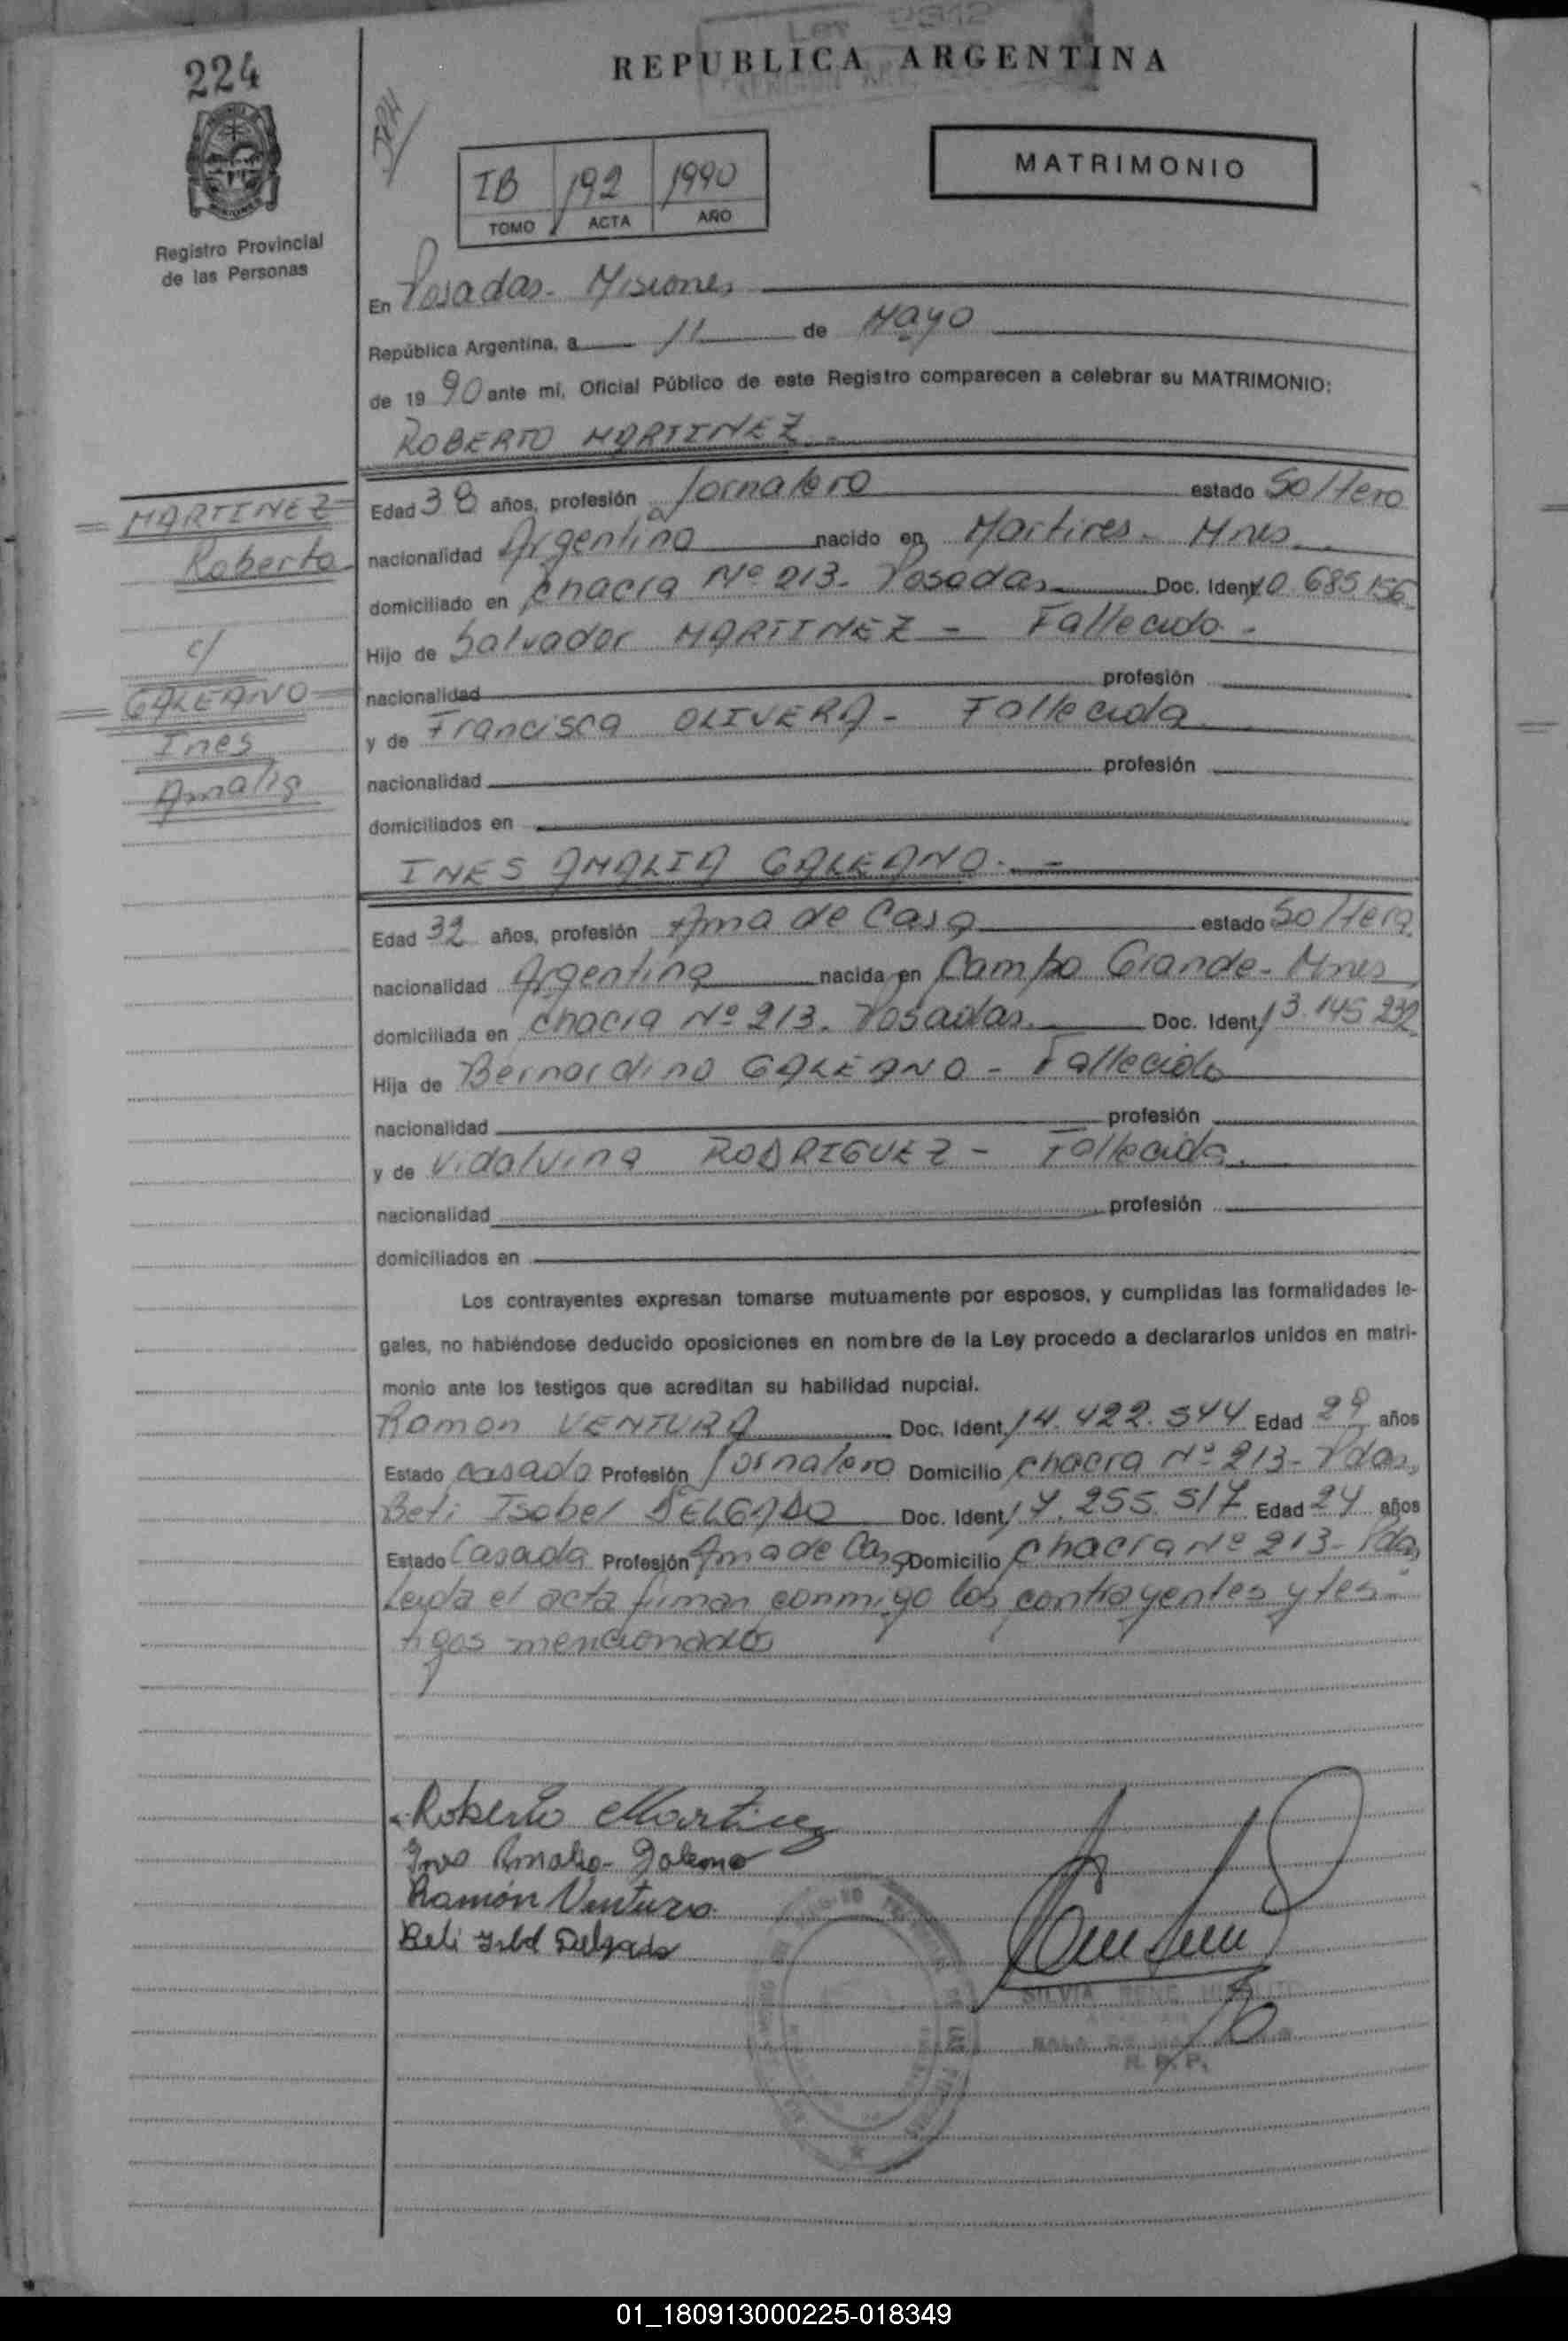 224
REPUBLICA ARGENTINA
MATRIMONIO
IB 192 1990
TOMO ACTA AÑO
Registro Provincial
de las Personas
En Posadas - Misiones
República Argentina, a 11 de Mayo
de 1990 ante mi, Oficial Público de este Registro comparecen a celebrar su MATRIMONIO:
ROBERTO MARTINEZ.-
MARTINEZ
Roberto
c/
GALEANO
Ines
Amalia
Edad 38 años, profesión Jornalero estado Soltero
nacionalidad Argentino nacido en Martires - Mnes
domiciliado en chacra Nº 213 - Posadas Doc. Ident 10.685.156
Hijo de Salvador MARTINEZ - Fallecido -
nacionalidad profesión
y de Francisca OLIVERA - Fallecida
nacionalidad profesión
domiciliados en
INES AMALIA GALEANO.-
Edad 32 años, profesión Ama de Casa estado Soltera
nacionalidad Argentina nacida en Campo Grande - Mnes
domiciliada en chacra Nº 213. Posadas. Doc. Ident 13.145.232
Hija de Bernardino GALEANO - Fallecido
nacionalidad profesión
y de Vidalvina RODRIGUEZ - Fallecida.
nacionalidad profesión
domiciliados en
Los contrayentes expresan tomarse mutuamente por esposos, y cumplidas las formalidades le-
gales, no habiéndose deducido oposiciones en nombre de la Ley procedo a declararlos unidos en matri-
monio ante los testigos que acreditan su habilidad nupcial.
Ramon VENTURA Doc. Ident. 14.422.544 Edad 29 años
Estado casado Profesión Jornalero Domicilio chacra Nº 213 - Pdas.
Beti Isabel DELGADO Doc. Ident 17.255.517 Edad 24 años
Estado Casada Profesión Ama de Casa Domicilio chacra Nº 213 - Pdas
Leida el acta firman conmigo los contrayentes y tes-
tigos mencionados
Roberto Martinez
Ines Amalia Galeano
Ramón Ventura
Beti Isbel Delgado
SILVIA
R. P. P.
01_180913000225-018349